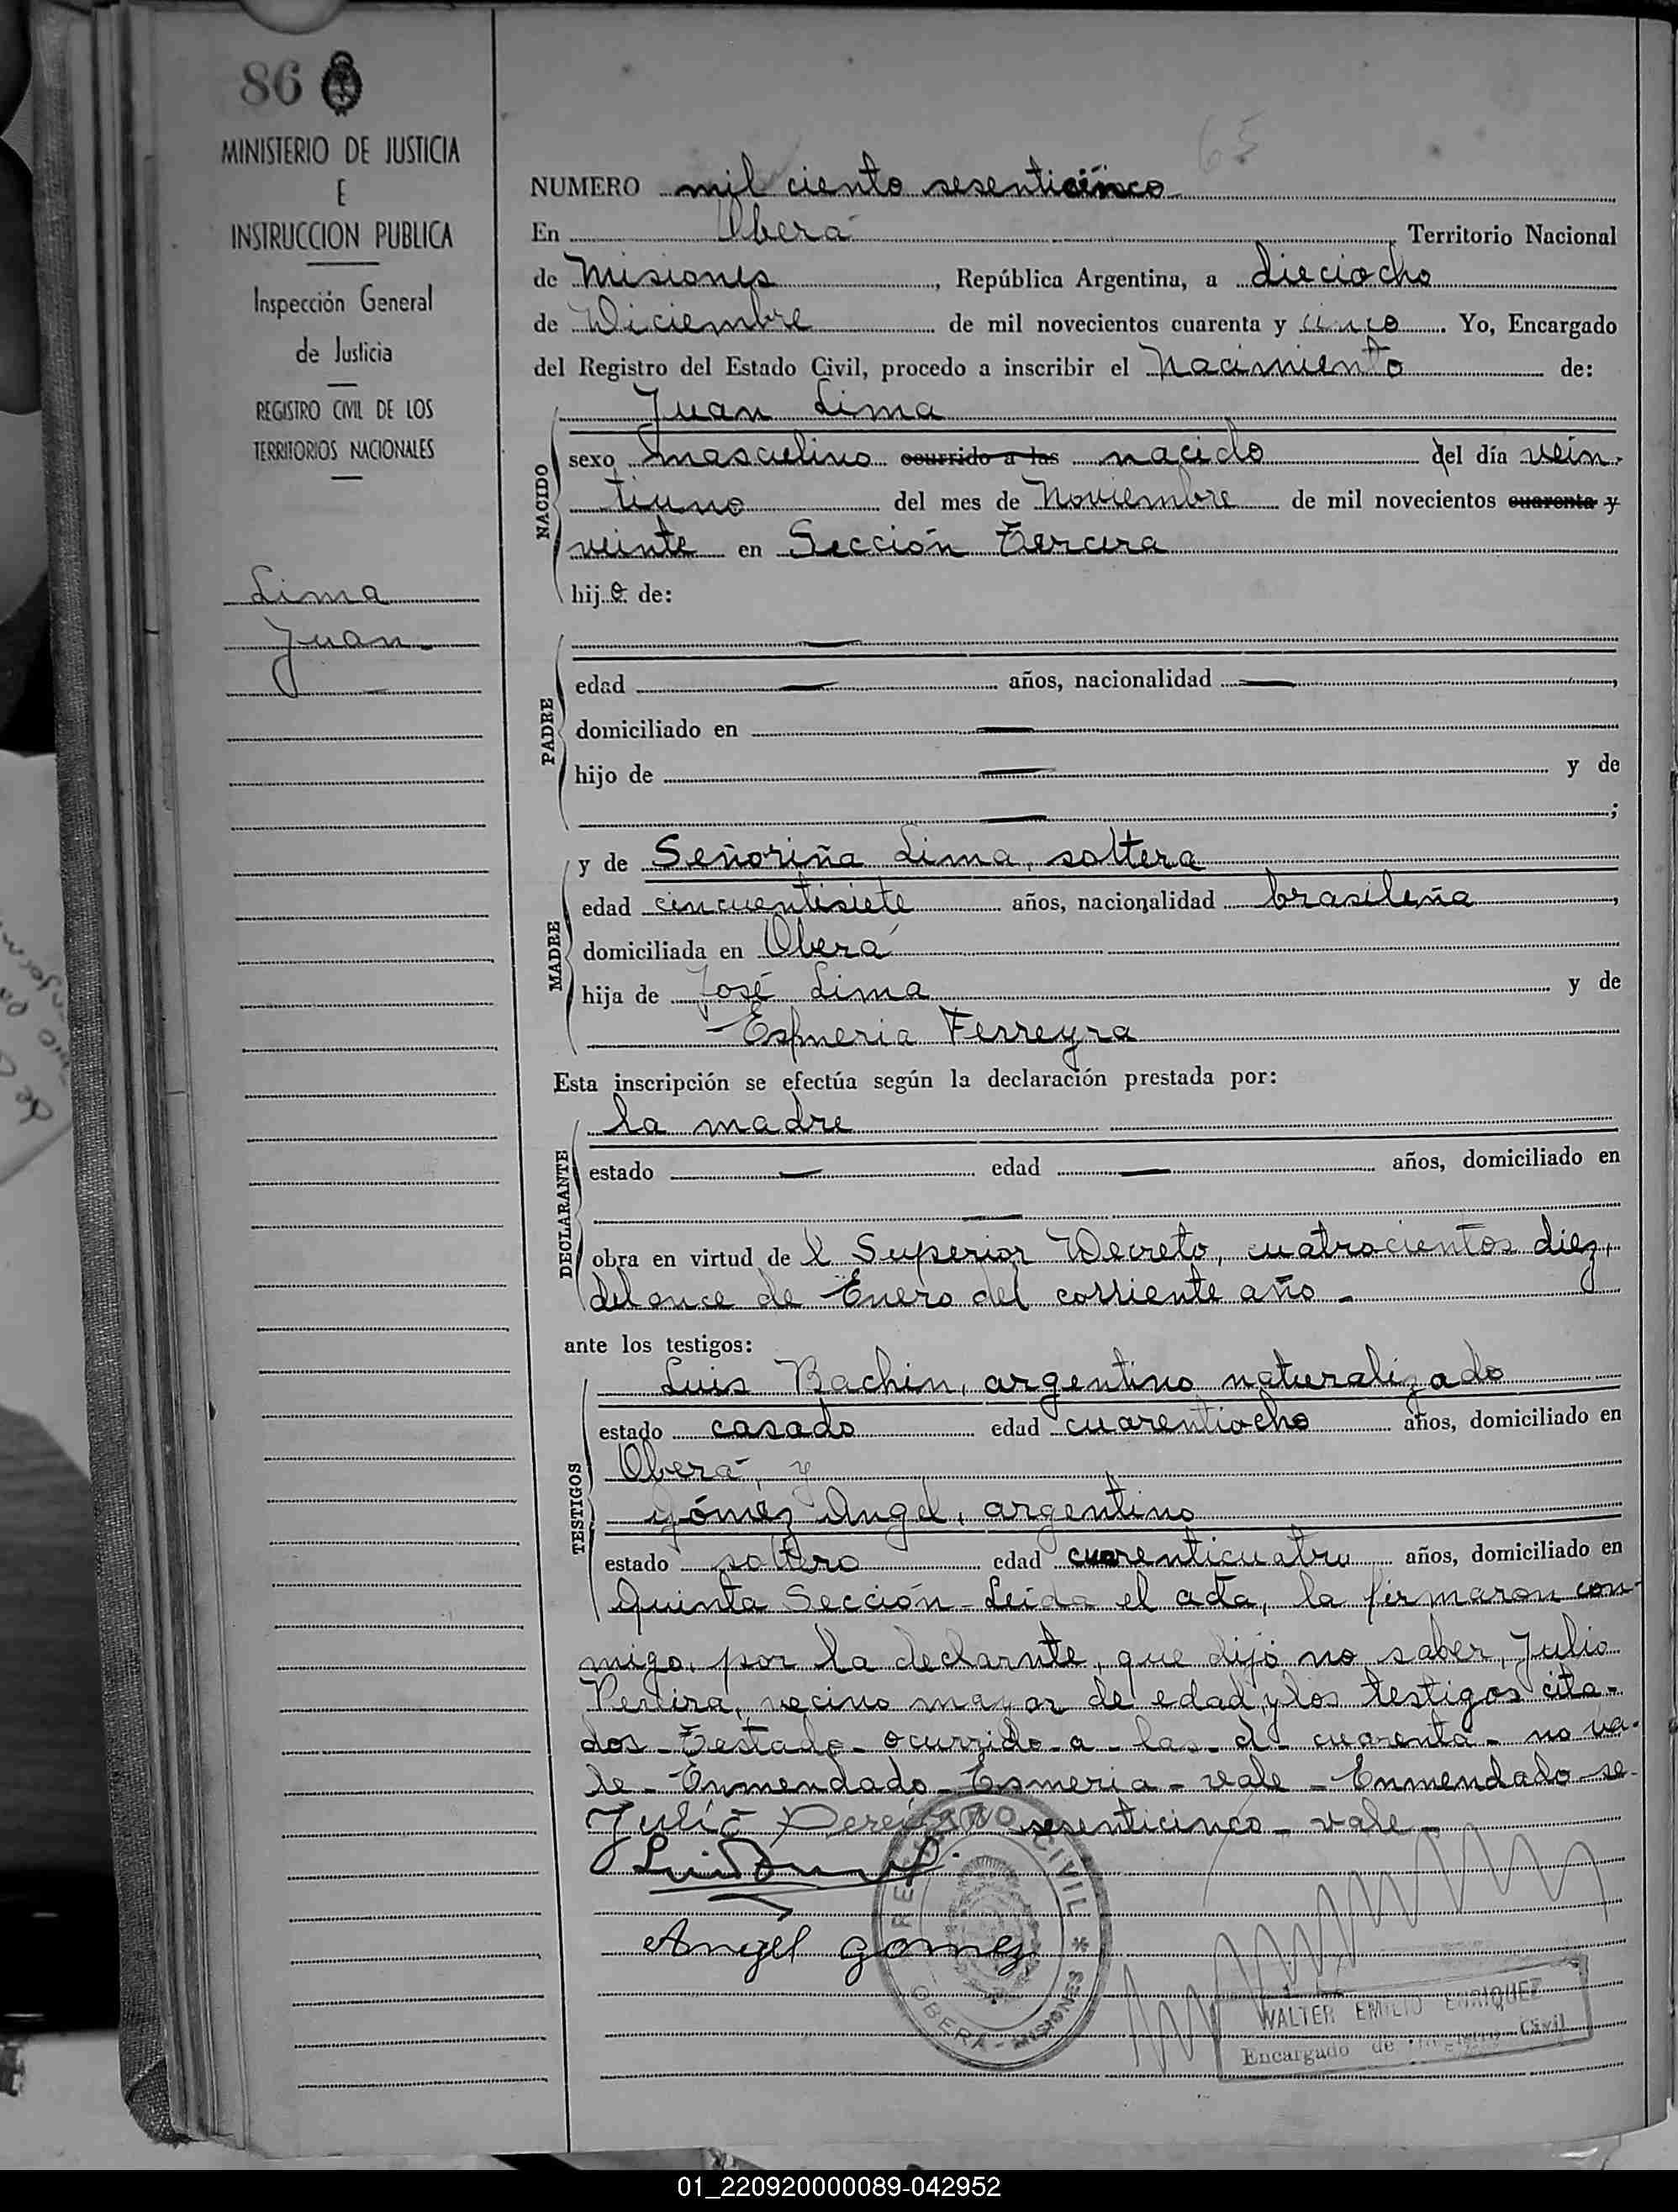 86
MINISTERIO DE JUSTICIA
E
INSTRUCCION PUBLICA
Inspección General
de Justicia
REGISTRO CIVIL DE LOS
TERRITORIOS NACIONALES
Lima
Juan
65
NUMERO mil ciento sesenticinco
En Oberá Territorio Nacional
de Misiones, República Argentina, a dieciocho
de Diciembre de mil novecientos cuarenta y cinco. Yo, Encargado
del Registro del Estado Civil, procedo a inscribir el Nacimiento de:
Juan Lima
NACIDO
sexo masculino ocurrido a las nacido del día vein-
tiuno del mes de Noviembre de mil novecientos cuarenta y
veinte en Sección Tercera
hijo de:
PADRE
edad años, nacionalidad
domiciliado en
hijo de y de
;
MADRE
y de Señoriña Lima, soltera
edad cincuentisiete años, nacionalidad brasileña,
domiciliada en Oberá
hija de José Lima y de
Esmeria Ferreyra
Esta inscripción se efectúa según la declaración prestada por:
DECLARANTE
la madre
estado edad años, domiciliado en
obra en virtud de l Superior Decreto, cuatrocientos diez,
del once de Enero del corriente año.-
ante los testigos:
TESTIGOS
Luis Bachin, argentino naturalizado
estado casado edad cuarentiocho años, domiciliado en
Oberá, y
Gómez Angel, argentino
estado soltero edad cuarenticuatro años, domiciliado en
Quinta Sección - Leida el acta, la firmaron con-
migo, por la declarnte, que dijó no saber, Julio
Pereira, vecino mayor de edad, y los testigos cita-
dos - Testado - ocurrido - a - las - d - cuarenta - no va-
le - Enmendado - Esmeria - vale - Enmendado - se-
Julio Pereira sesenticinco - vale -
Angel gomez
REGISTRO CIVIL * OBERA - MISIONES
WALTER EMILIO ENRIQUEZ
Encargado de Registro Civil
01_220920000089-042952